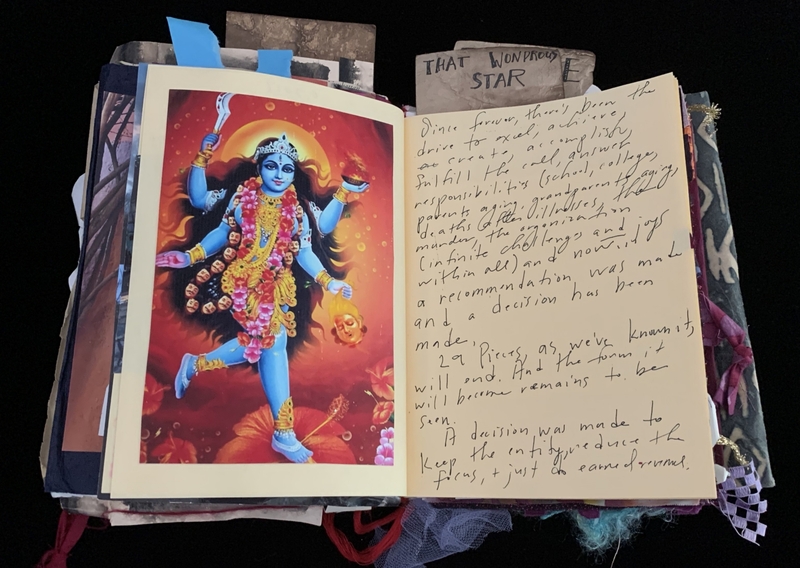 THAT WONDROUS
STAR E
Since forever, there's been the
drive to excel, achieve,
create accomplish,
fulfill the call, answer
responsibilities (school, college,
parents aging, grandparents aging,
deaths after illnesses, the
murder, the organization
(infinite challenges and joys
within all) and now
a recommendation was made
and a decision has been
made.
29 Pieces, as we've known it,
will end. And the form it
will become remains to be
seen.
A decision was made to
keep the entity, reduce the
focus, + just do earned revenue.